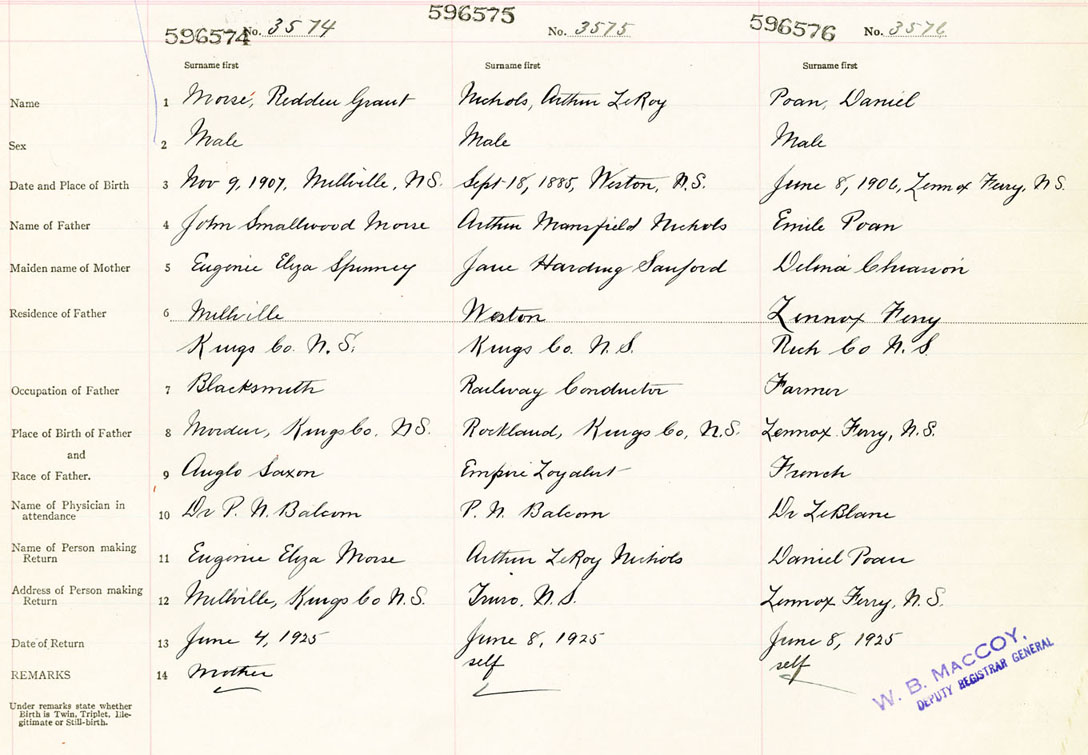 596574 No. 3574 596575 No. 3575 596576 No. 3576
Surname first Surname first Surname first
Name 1 Morse, Redden Grant Nichols, Arthur LeRoy Poan, Daniel
Sex 2 Male Male Male
Date and Place of Birth 3 Nov 9, 1907, Millville, N.S. Sept 18, 1885, Weston, N.S. June 8, 1906, Lennox Ferry, N.S.
Name of Father 4 John Smallwood Morse Arthur Mansfield Nichols Emile Poan
Maiden name of Mother 5 Eugenie Eliza Spinney Jane Harding Sanford Delina Chiasson
Residence of Father 6 Millville Weston Lennox Ferry
Kings Co. N.S. Kings Co. N.S. Rich Co N.S.
Occupation of Father 7 Blacksmith Railway Conductor Farmer
Place of Birth of Father 8 Morden, Kings Co. N.S. Rockland, Kings Co, N.S. Lennox Ferry, N.S.
and
Race of Father. 9 Anglo Saxon Empire Loyalist French
Name of Physician in
attendance 10 Dr P. N. Balcom P. N. Balcom Dr LeBlanc
Name of Person making
Return 11 Eugenie Eliza Morse Arthur LeRoy Nichols Daniel Poan
Address of Person making
Return 12 Millville, Kings Co N.S. Truro, N.S. Lennox Ferry, N.S.
Date of Return 13 June 4, 1925 June 8, 1925 June 8, 1925
REMARKS 14 Mother self self
Under remarks state whether
Birth is Twin, Triplet, Ille-
gitimate or Still-birth.
W. B. MACCOY,
DEPUTY REGISTRAR GENERAL